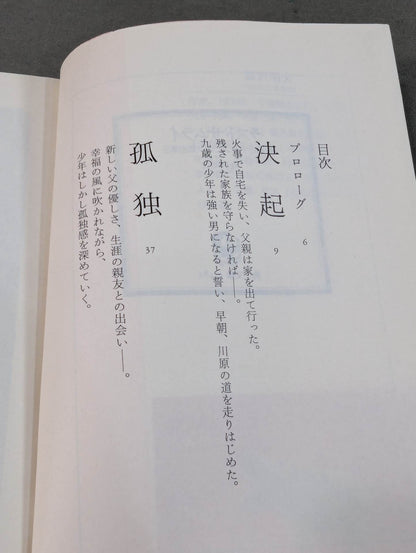 目次
プロローグ 6
決起 9
火事で自宅を失い、父親は家を出て行った。
残された家族を守らなければ――。
九歳の少年は強い男になると誓い、早朝、川原の道を走りはじめた。
孤独 37
新しい父の優しさ、生涯の親友との出会い――。
幸福の風に吹かれながら、
少年はしかし孤独感を深めていく。